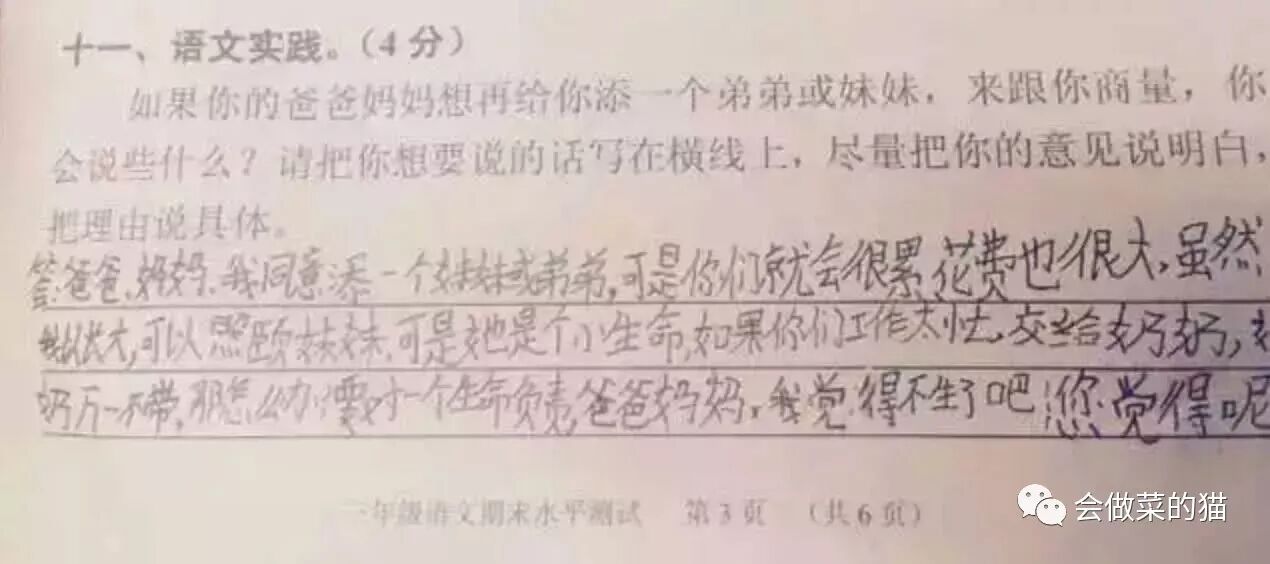 十一、语文实践。（4分）
如果你的爸爸妈妈想再给你添一个弟弟或妹妹，来跟你商量，你
会说些什么？请把你想要说的话写在横线上，尽量把你的意见说明白，
把理由说具体。
答:爸爸、妈妈、我同意添一个妹妹或弟弟,可是你们就会很累,花费也很大,虽然
长大,可以照顾妹妹,可是她是个小生命,如果你们工作太忙,交给奶奶,
奶万一不带,那怎么办,要对一个生命负责,爸爸妈妈,我觉得不生了吧,您觉得呢
三年级语文期末水平测试 第3页 （共6页）
会做菜的猫